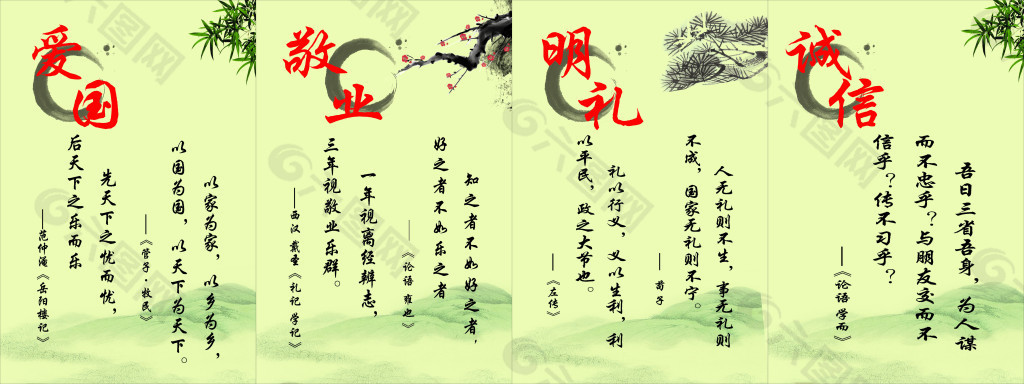 爱国
以家为家，以乡为乡，
以国为国，以天下为天下。
——《管子·牧民》
先天下之忧而忧，
后天下之乐而乐
——范仲淹《岳阳楼记》
敬业
知之者不如好之者，
好之者不如乐之者
——《论语 雍也》
一年视离经辨志，
三年视敬业乐群。
——西汉 戴圣《礼记 学记》
明礼
人无礼则不生，事无礼则
不成，国家无礼则不宁。
——荀子
礼以行义，义以生利，利
以平民，政之大节也。
——《左传》
诚信
吾日三省吾身，为人谋
而不忠乎？与朋友交而不
信乎？传不习乎？
——《论语 学而》
六图网